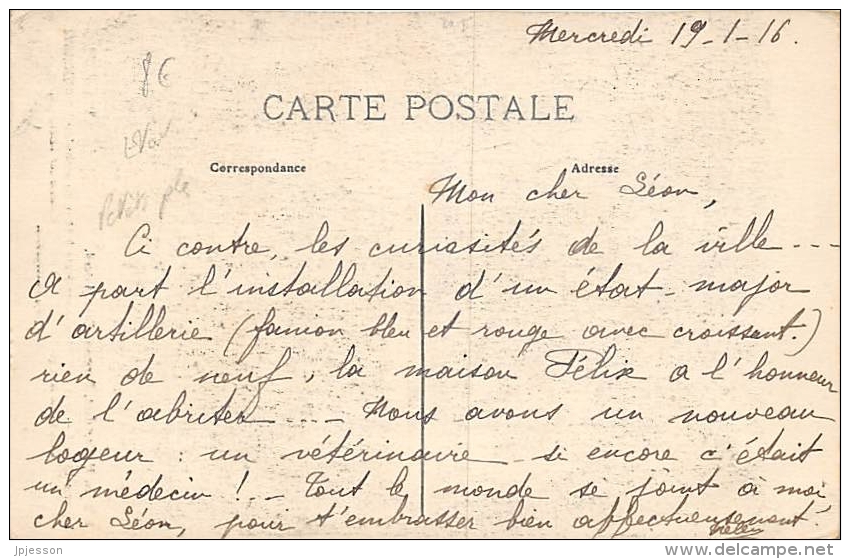 Mercredi 19-1-16.
8€
CARTE POSTALE
Correspondance
Adresse
Mon cher Léon,
Ci contre, les curiosités de la ville ---
A part l'installation d'un état-major
d'artillerie (fanion bleu et rouge avec croissant.)
rien de neuf, la maison Félix a l'honneur
de l'abriter ---- Nous avons un nouveau
logeur : un vétérinaire - si encore c'était
un médecin ! -- Tout le monde se joint à moi,
cher Léon, pour t'embrasser bien affectueusement.
jpjesson
delcampe.net